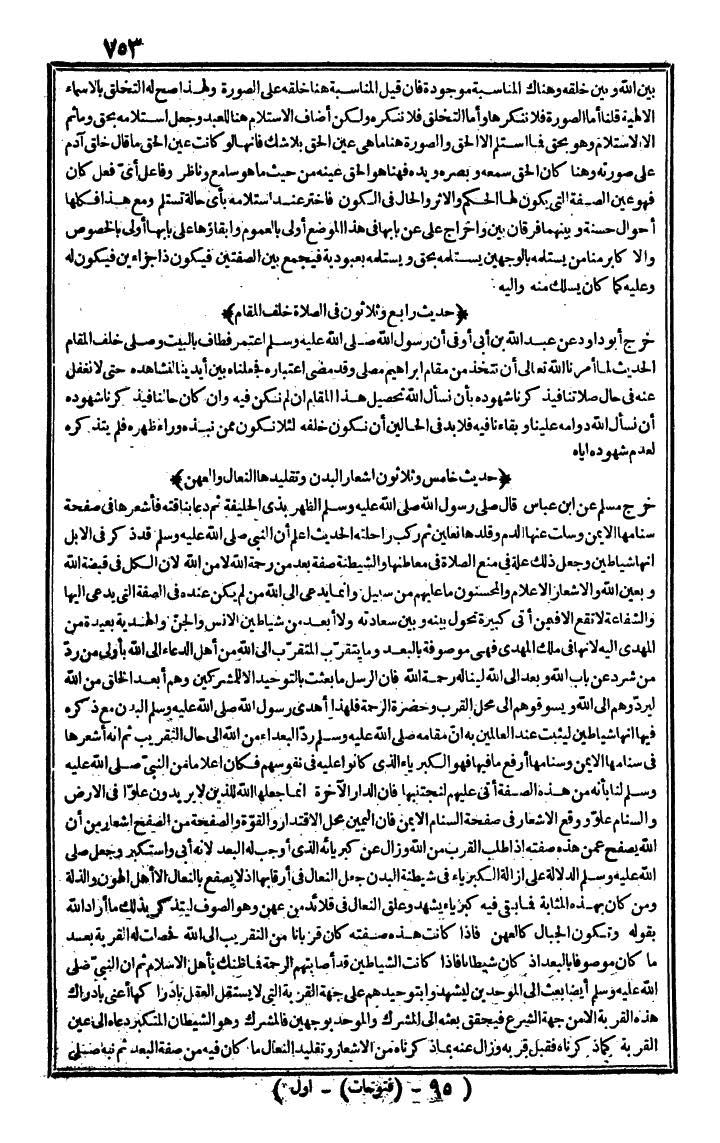 ٧٥٣
بين الله وبين خلقه وهناك المناسبة موجودة فان قيل المناسبة هنا خلقه على الصورة ولهذا صح له التخلق بالاسماء
الالهية قلنا أما الصورة فلا ننكرها وأما التخلق فلا ننكره ولكن أضاف الاستلام هنا للعبد وجعل استلامه بحق وما ثم
الا الاستلام وهو بحق فما استلم الا الحق والصورة هنا ما هى عين الحق بلا شك فانها لو كانت عين الحق ما قال خلق آدم
على صورته وهنا كان الحق سمعه وبصره ويده فهنا هو الحق عينه من حيث ما هو سامع وناظر وفاعل أى فعل كان
فهو عين الصفة التى يكون لها الحكم والاثر والحال فى الكون فاختر عند استلامه بأى حالة تستلم ومع هذا فكلها
أحوال حسنة وبينهما فرقان بين واخراج على عن بابها فى هذا الموضع أولى بالعموم وابقاؤها على بابها أولى بالخصوص
والاكابر منا من يستلمه بالوجهين يستلمه بحق ويستلمه بعبودية فيجمع بين الصفتين فيكون ذا جزاءين فيكون له
وعليه كما كان يسلك منه واليه
﴿حديث رابع وثلاثون فى الصلاة خلف المقام﴾
خرج أبو داود عن عبد الله بن أبى أوفى أن رسول الله صلى الله عليه وسلم اعتمر فطاف بالبيت وصلى خلف المقام
الحديث لما أمرنا الله تعالى أن نتخذ من مقام ابراهيم مصلى وقد مضى اعتباره جعلناه بين أيدينا لنشاهده حتى لا نغفل
عنه فى حال صلاتنا فيذكرنا شهوده بأن نسأل الله تحصيل هذا المقام ان لم نكن فيه وان كان حالنا فيذكرنا شهوده
أن نسأل الله دوامه علينا وبقاءنا فيه فلا بد فى الحالين أن نكون خلفه لئلا نكون ممن نبذه وراء ظهره فلم يتذكره
لعدم شهوده اياه
﴿حديث خامس وثلاثون اشعار البدن وتقليدها النعال والعهن﴾
خرج مسلم عن ابن عباس قال صلى رسول الله صلى الله عليه وسلم الظهر بذى الحليفة ثم دعا بناقته فأشعرها فى صفحة
سنامها الايمن وسلت عنها الدم وقلدها نعلين ثم ركب راحلته الحديث اعلم أن النبى صلى الله عليه وسلم قد ذكر فى الابل
انها شياطين وجعل ذلك علة فى منع الصلاة فى معاطنها والشيطنة صفة بعد من رحمة الله لا من الله لان الكل فى قبضة الله
وبعين الله والاشعار الاعلام والمحسنون ما عليهم من سبيل وانما يدعى الى الله من لم يكن عنده فى الصفة التى يدعى اليها
والشفاعة لا تقع الا فيمن أتى كبيرة تحول بينه وبين سعادته ولا أبعد من شياطين الانس والجن والهدية بعيدة من
المهدى اليه لانها فى ملك المهدى فهى موصوفة بالبعد وما يتقرب المتقرب الى الله من أهل الدعاء الى الله بأولى من رد
من شرد عن باب الله وبعد الى الله ليناله رحمة الله فان الرسل ما بعثت بالتوحيد الا للمشركين وهم أبعد الخلق من الله
ليردوهم الى الله ويسوقوهم الى محل القرب وحضرة الرحمة فلهذا أهدى رسول الله صلى الله عليه وسلم البدن مع ذكره
فيها انها شياطين ليثبت عند العالمين به ان مقامه صلى الله عليه وسلم رد البعداء من الله الى حال التقريب ثم انه أشعرها
فى سنامها الايمن وسنامها أرفع ما فيها فهو الكبرياء الذى كانوا عليه فى نفوسهم فكان اعلاما من النبى صلى الله عليه
وسلم لنا بأنه من هذه الصفة أتى عليهم لنجتنبها فان الدار الآخرة انما جعلها الله للذين لا يريدون علوا فى الارض
والسنام علو ووقع الاشعار فى صفحة السنام الايمن فان اليمين محل الاقتدار والقوة والصفحة من الصفح اشعار من أن
الله يصفح عمن هذه صفته اذا طلب القرب من الله وزال عن كبريائه الذى أوجب له البعد لانه أبى واستكبر وجعل صلى
الله عليه وسلم الدلالة على ازالة الكبرياء فى شيطنة البدن جعل النعال فى أرقابها اذ لا يصفع بالنعال الا أهل الهون والذلة
ومن كان بهذه المثابة فما بقى فيه كبرياء يشهد وعلق النعال فى قلائد من عهن وهو الصوف ليتذكر بذلك ما أراد الله
بقوله وتكون الجبال كالعهن فاذا كانت هذه صفته كان قربانا من التقريب الى الله فحصلت له القربة بعد
ما كان موصوفا بالبعد اذ كان شيطانا فاذا كانت الشياطين قد أصابتهم الرحمة فما ظنك بأهل الاسلام ثم ان النبى صلى
الله عليه وسلم أيضا بعث الى الموحدين ليشهدوا بتوحيدهم على جهة القربة التى لا يستقل العقل بادراكها أعنى بادراك
هذه القربة الا من جهة الشرع فيحقق بعثه الى المشرك والموحد بوجهين فالمشرك وهو الشيطان المتكبر دعاه الى عين
القربة كما ذكرناه فقبل قربه وزال عنه بما ذكرناه من الاشعار وتقليد النعال ما كان فيه من صفة البعد ثم نبه صلى
( ٩٥ - (فتوحات) - اول )